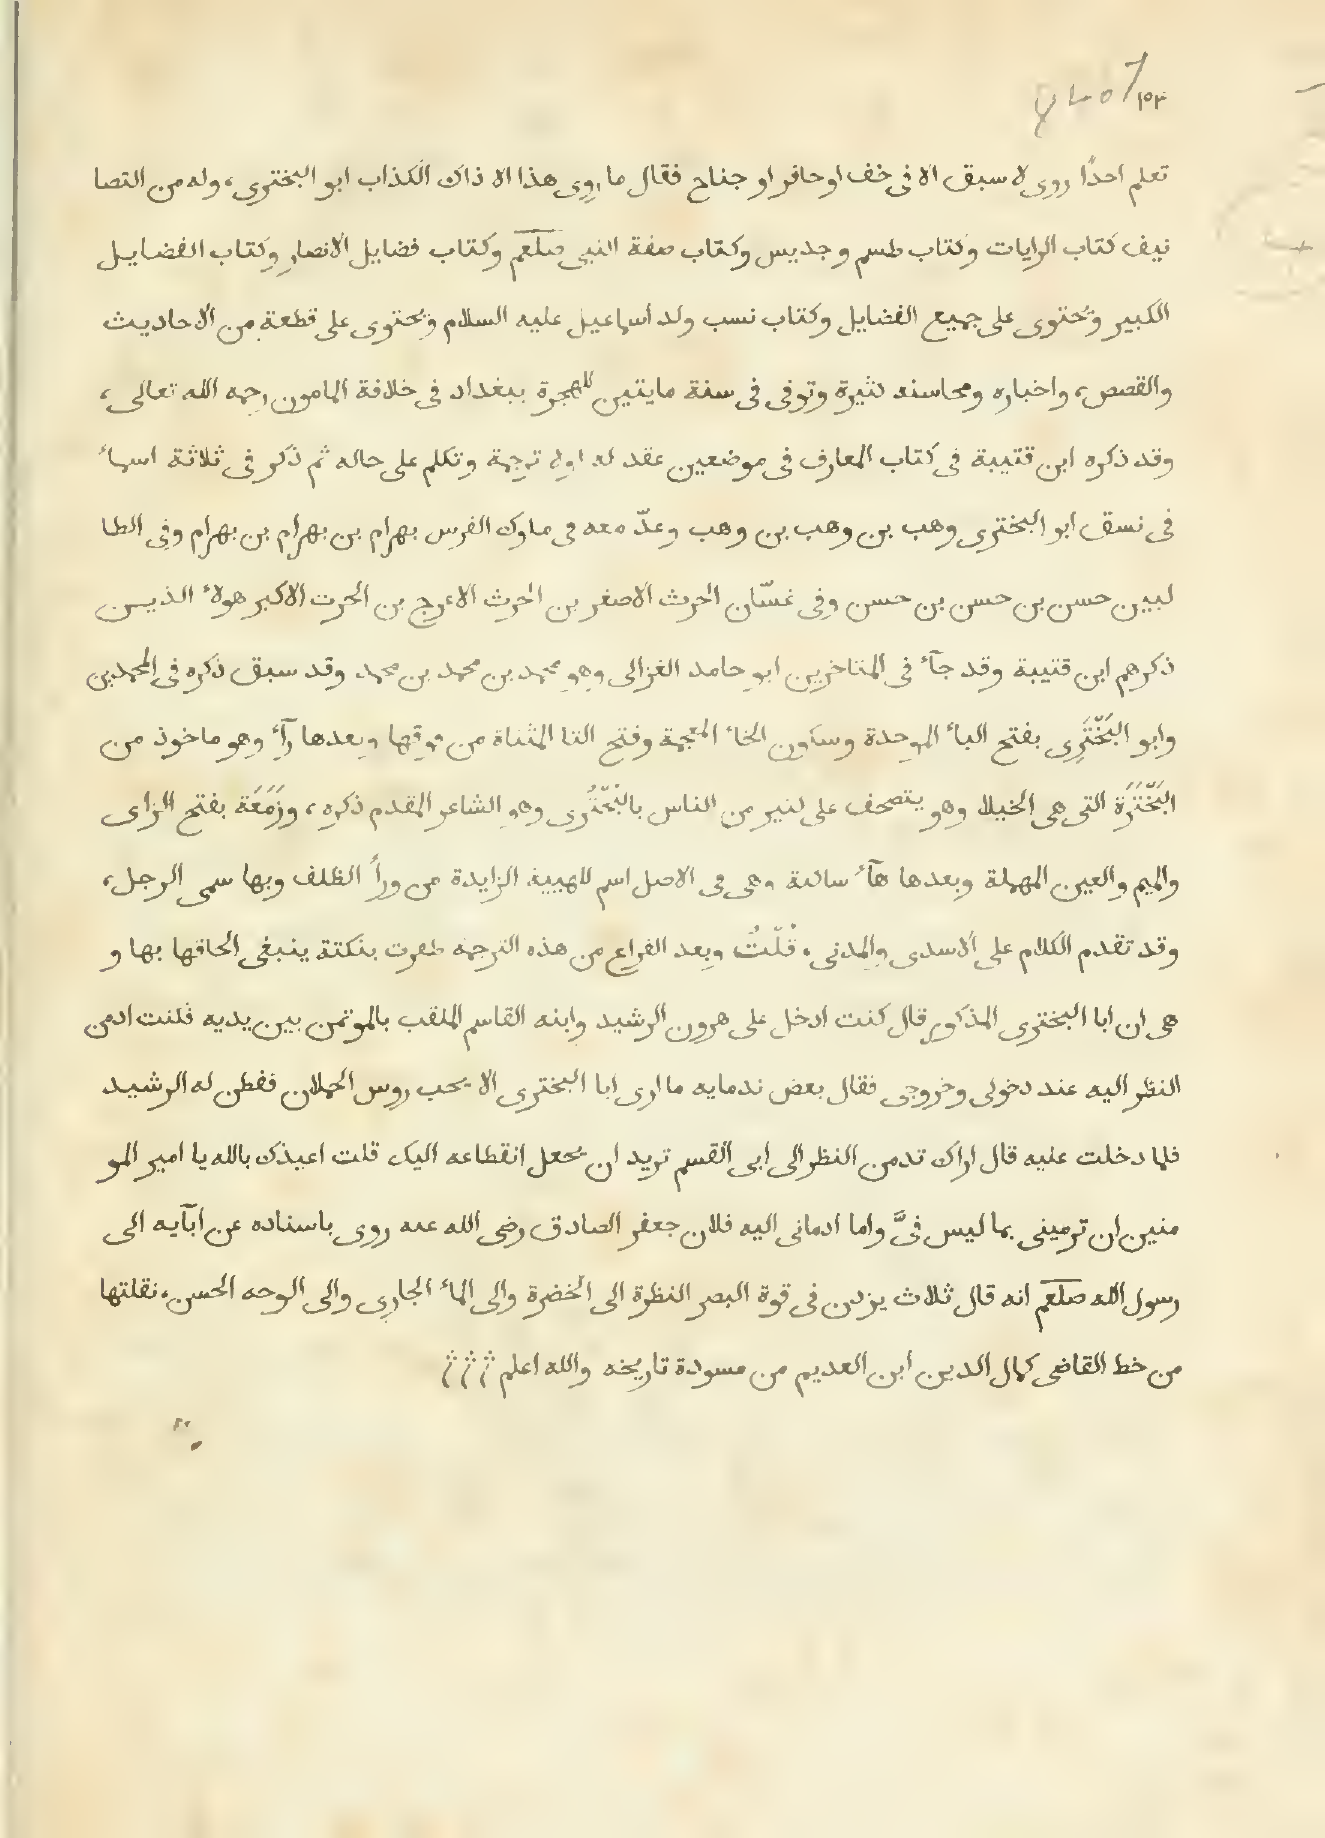 ١٥٣
تعلم احدًا روى لا سبق الا فى خف او حافر او جناح فقال ما روى هذا الا ذاك الكذاب ابو البخترى، وله من التصا
نيف كتاب الرايات وكتاب طسم وجديس وكتاب صفة النبى صلعم وكتاب فضايل الانصار وكتاب الفضايل
الكبير ويحتوى على جميع الفضايل وكتاب نسب ولد اسماعيل عليه السلام ويحتوى على قطعة من الاحاديث
والقصص، واخباره ومحاسنه كثيرة وتوفى فى سنة مايتين للهجرة ببغداد فى خلافة المامون رحمه الله تعالى،
وقد ذكره ابن قتيبة فى كتاب المعارف فى موضعين عقد له اولا ترجمة وتكلم على حاله ثم ذكر فى ثلاثة اسمآء
فى نسق ابو البخترى وهب بن وهب بن وهب وعدّ معه فى ملوك الفرس بهرام بن بهرام بن بهرام وفى الطا
لبين حسن بن حسن بن حسن وفى غسّان الحرث الاصغر بن الحرث الاعرج بن الحرث الاكبر هولاء الذيـن
ذكرهم ابن قتيبة وقد جآء فى المتاخرين ابو حامد الغزالى وهو محمد بن محمد بن محمد وقد سبق ذكره فى المحمدين
وابو البَخْتَرِى بفتح الباء الموحدة وسكون الخاء المعجمة وفتح التا المثناة من فوقها وبعدها رآء وهو ماخوذ من
البَخْتَرَة التى هى الخيلا وهو يتصحف على كثير من الناس بالبُحْتُرى وهو الشاعر المقدم ذكره، وزَمَعَة بفتح الزاى
والميم والعين المهملة وبعدها هآء ساكنة وهى فى الاصل اسم للهيية الزايدة من ورآء الظلف وبها سمى الرجل،
وقد تقدم الكلام على الاسدى والمدنى، قُلْتُ وبعد الفراغ من هذه الترجمة ظفرت بنكتة ينبغى الحاقها بها و
هى ان ابا البخترى المذكور قال كنت ادخل على هرون الرشيد وابنه القاسم الملقب بالموتمن بين يديه فكنت ادمن
النظر اليه عند دخولى وخروجى فقال بعض ندمايه ما ارى ابا البخترى الا يحب روس الحملان ففطن له الرشيد
فلما دخلت عليه قال اراك تدمن النظر الى ابى القسم تريد ان يجعل انقطاعه اليك قلت اعيذك بالله يا امير المو
منين ان ترمينى بما ليس فىَّ واما ادمانى اليه فلان جعفر الصادق رضى الله عنه روى باسناده عن ابآيه الى
رسول الله صلعم انه قال ثلاث يزدن فى قوة البصر النظرة الى الخضرة والى المآء الجارى والى الوجه الحسن، نقلتها
من خط القاضى كمال الدين ابن العديم من مسودة تاريخه والله اعلم